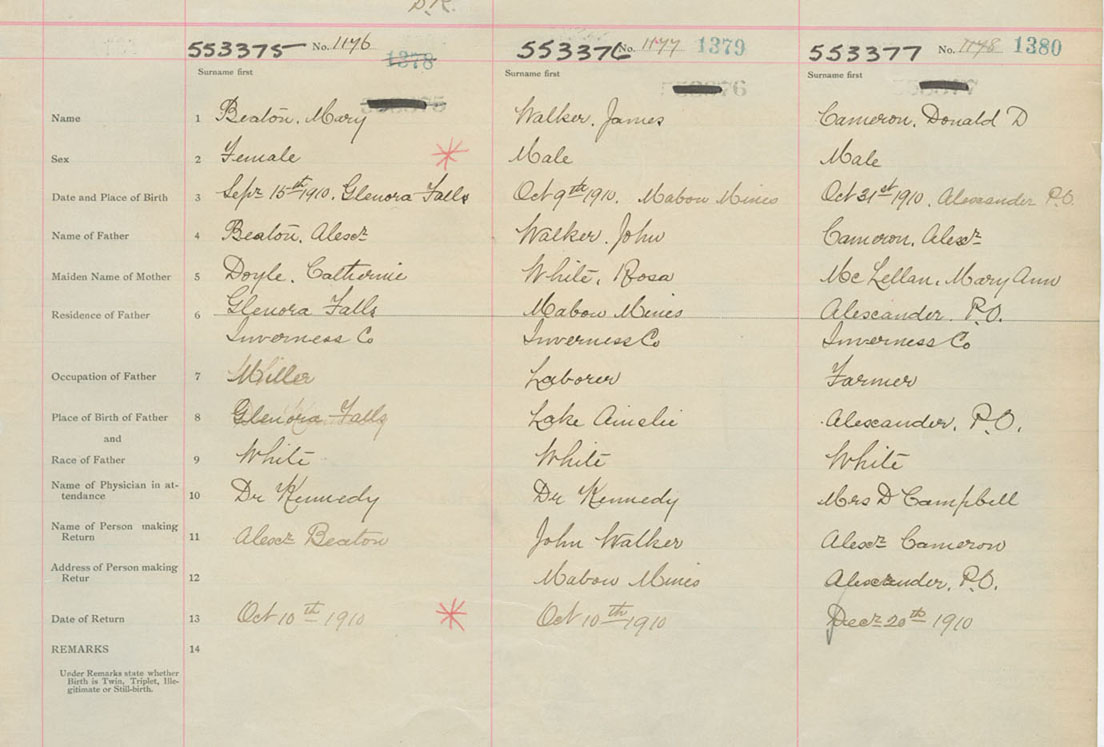 553375 No. 1176 1378 553376 No. 1177 1379 553377 No. 1178 1380
Surname first Surname first Surname first
Name 1 Beaton, Mary Walker, James Cameron, Donald D
Sex 2 Female Male Male
Date and Place of Birth 3 Sepr 15th 1910, Glenora Falls Oct 9th 1910, Mabou Mines Oct 31st 1910, Alexander P.O.
Name of Father 4 Beaton, Alexr Walker, John Cameron, Alexr
Maiden Name of Mother 5 Doyle, Catherine White, Rosa McLellan, Mary Ann
Residence of Father 6 Glenora Falls Mabou Mines Alexander P.O.
Inverness Co Inverness Co Inverness Co
Occupation of Father 7 Miller Laborer Farmer
Place of Birth of Father 8 Glenora Falls Lake Ainslie Alexander, P.O.
and
Race of Father 9 White White White
Name of Physician in at-
tendance 10 Dr Kennedy Dr Kennedy Mrs D Campbell
Name of Person making
Return 11 Alexr Beaton John Walker Alexr Cameron
Address of Person making
Retur 12 Mabou Mines Alexander, P.O.
Date of Return 13 Oct 10th 1910 Oct 10th 1910 Decr 20th 1910
REMARKS 14
Under Remarks state whether
Birth is Twin, Triplet, Ille-
gitimate or Still-birth.